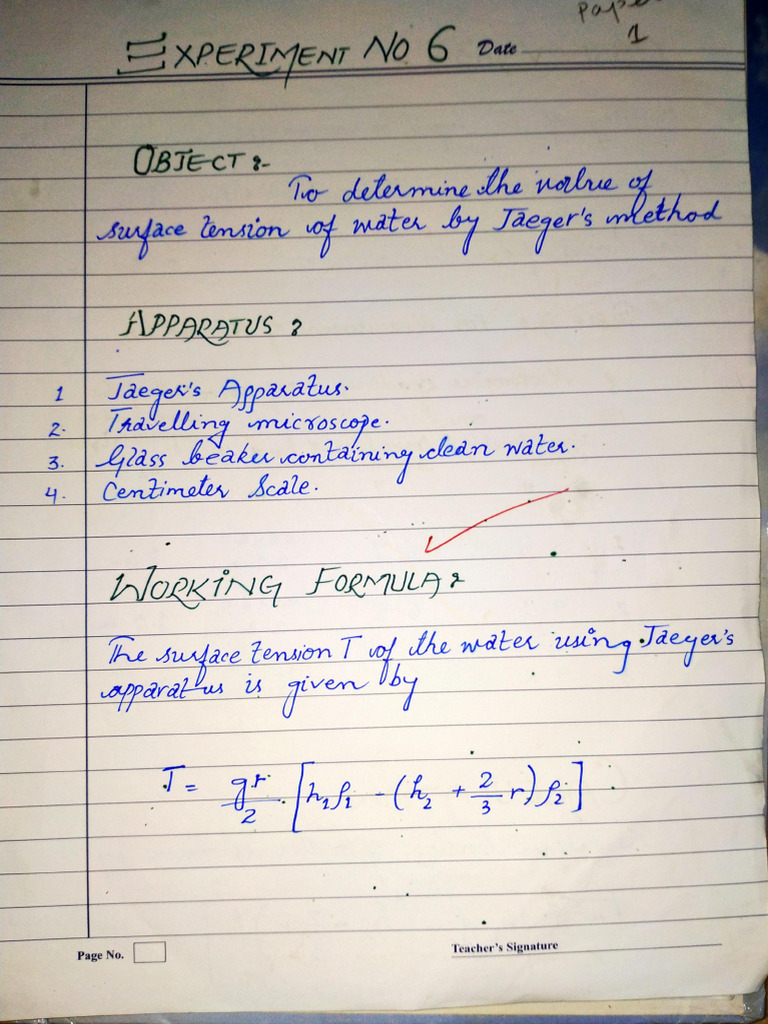 Paper
1
EXPERIMENT NO 6 Date
OBJECT :-
To determine the value of
surface tension of water by Jaeger's method
APPARATUS :
1 Jaeger's Apparatus.
2. Travelling microscope.
3. Glass beaker containing clean water.
4. Centimeter Scale.
WORKING FORMULA :
The surface tension T of the water using Jaeger's
apparatus is given by
T = gr/2 [h₁ρ₁ - (h₂ + 2/3 r) ρ₂]
Page No.
Teacher's Signature